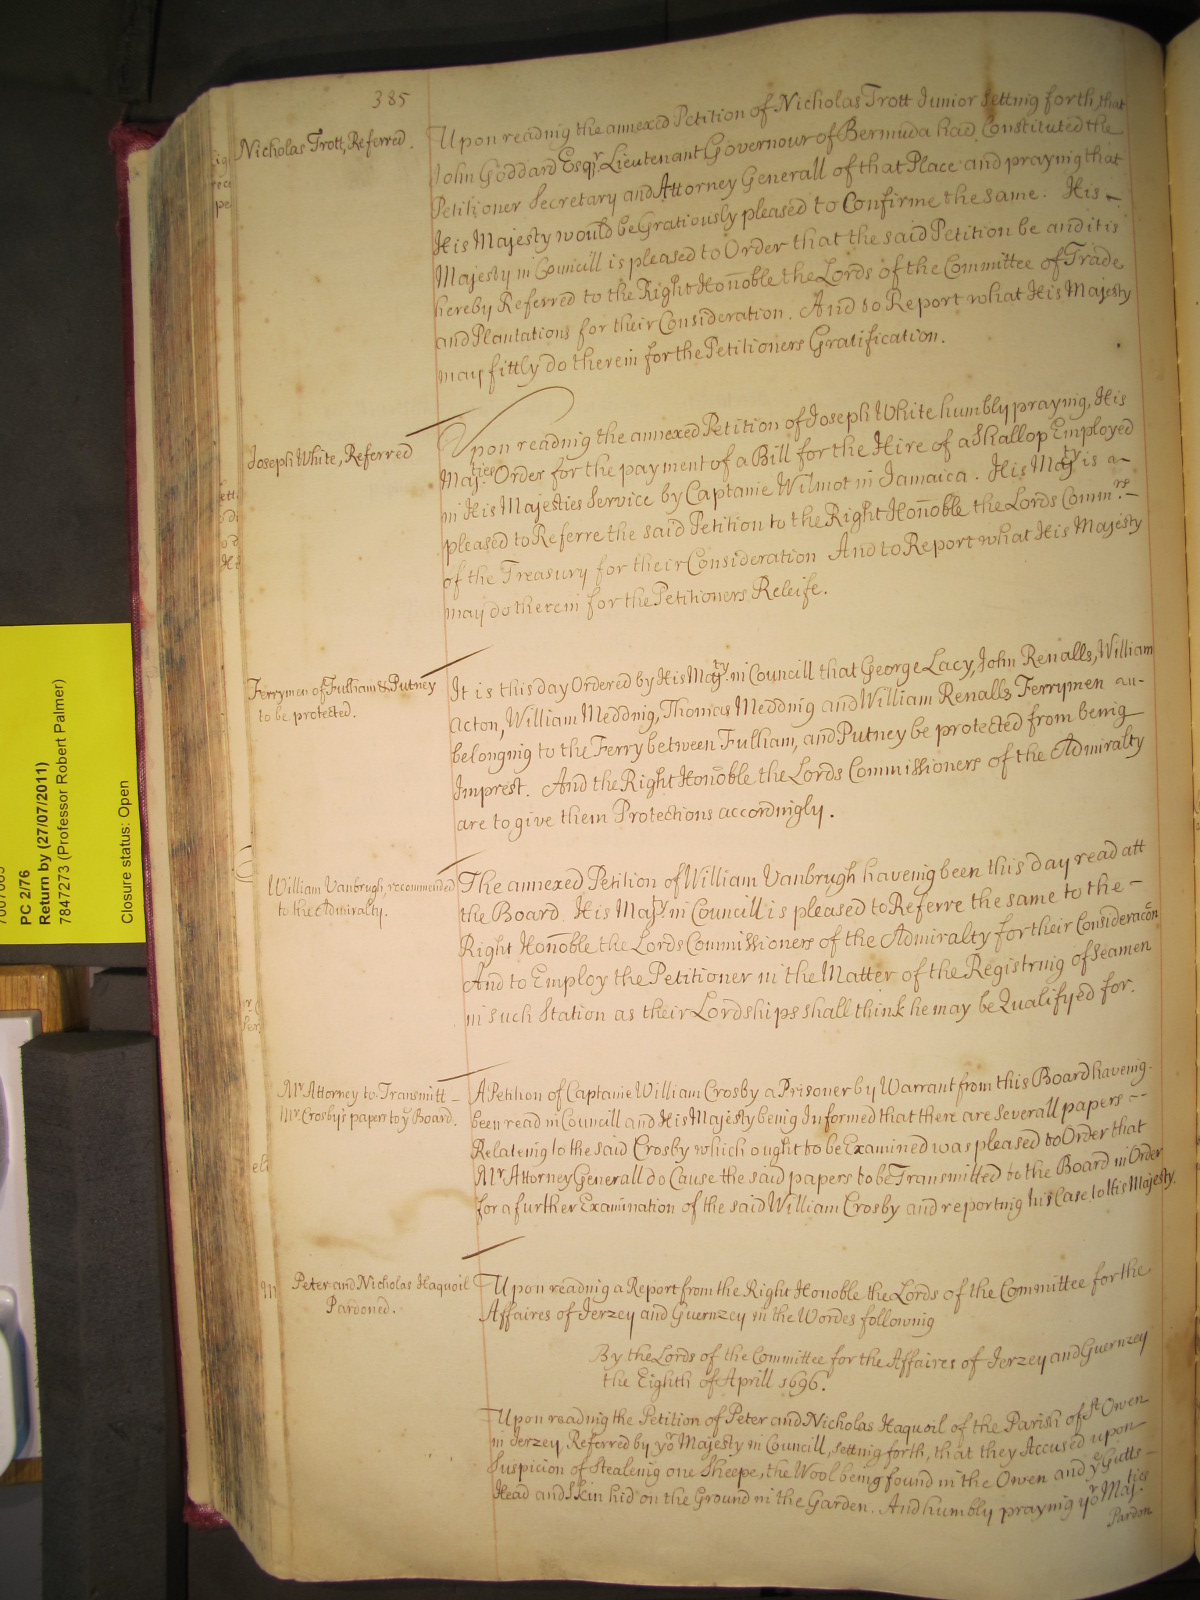 385
Nicholas Trott, Referred.
Upon reading the annexed Petition of Nicholas Trott Junior setting forth, that
John Goddard Esqr. Lieutenant Governour of Bermuda had Constituted the
Petitioner Secretary and Attorney Generall of that Place and praying that
His Majesty would be Gratiously pleased to Confirme the same. His
Majesty in Councill is pleased to Order that the said Petition be and it is
hereby Referred to the Right Honoble the Lords of the Committee of Trade
and Plantations for their Consideration. And to Report what His Majesty
may fittly do therein for the Petitioners Gratification.
Joseph White, Referred
Upon reading the annexed Petition of Joseph White humbly praying, His
Majties Order for the payment of a Bill for the Hire of a Shallop Employed
in His Majesties Service by Captaine Wilmot in Jamaica. His Maty is
pleased to Referre the said Petition to the Right Honoble the Lords Commrs
of the Treasury for their Consideration And to Report what His Majesty
may do therein for the Petitioners Releife.
Ferrymen of Fulham & Putney
to be protected.
It is this day Ordered by His Maty in Councill that George Lacy, John Renalls, William
Acton, William Medding, Thomas Medding and William Renalls Ferrymen
belonging to the Ferry between Fulham, and Putney be protected from being
Imprest. And the Right Honoble the Lords Commissioners of the Admiralty
are to give them Protections accordingly.
William Vanbrugh, recommended
to the Admiralty.
The annexed Petition of William Vanbrugh haveing been this day read att
the Board. His Maty in Councill is pleased to Referre the same to the
Right Honoble the Lords Commissioners of the Admiralty for their Consideracon
And to Employ the Petitioner in the Matter of the Registring of Seamen
in such Station as their Lordships shall think he may be Qualifyed for.
Mr Attorney to Transmitt
Mr Crosby's paper to ye Board.
A Petition of Captaine William Crosby a Prisoner by Warrant from this Board haveing
been read in Councill and His Majesty being Informed that there are Severall papers
Relateing to the said Crosby which ought to be Examined was pleased to Order that
Mr Attorney Generall do Cause the said papers to be Transmitted to the Board in Order
for a further Examination of the said William Crosby and reporting his Case to His Majesty.
Peter and Nicholas Haquoil
Pardoned.
Upon reading a Report from the Right Honoble the Lords of the Committee for the
Affaires of Jerzey and Guernzey in the Wordes following
By the Lords of the Committee for the Affaires of Jerzey and Guernzey
the Eighth of Aprill 1696.
Upon reading the Petition of Peter and Nicholas Haquoil of the Parish of St Owen
in Jerzey Referred by yor Majesty in Councill, setting forth, that they Accused upon
Suspicion of Stealeing one Sheepe, the Wool being found in the Owen and ye Gutts
Head and Skin hid on the Ground in the Garden. And humbly praying yor Majties
Pardon
PC 2/76
Return by (27/07/2011)
7847273 (Professor Robert Palmer)
Closure status: Open